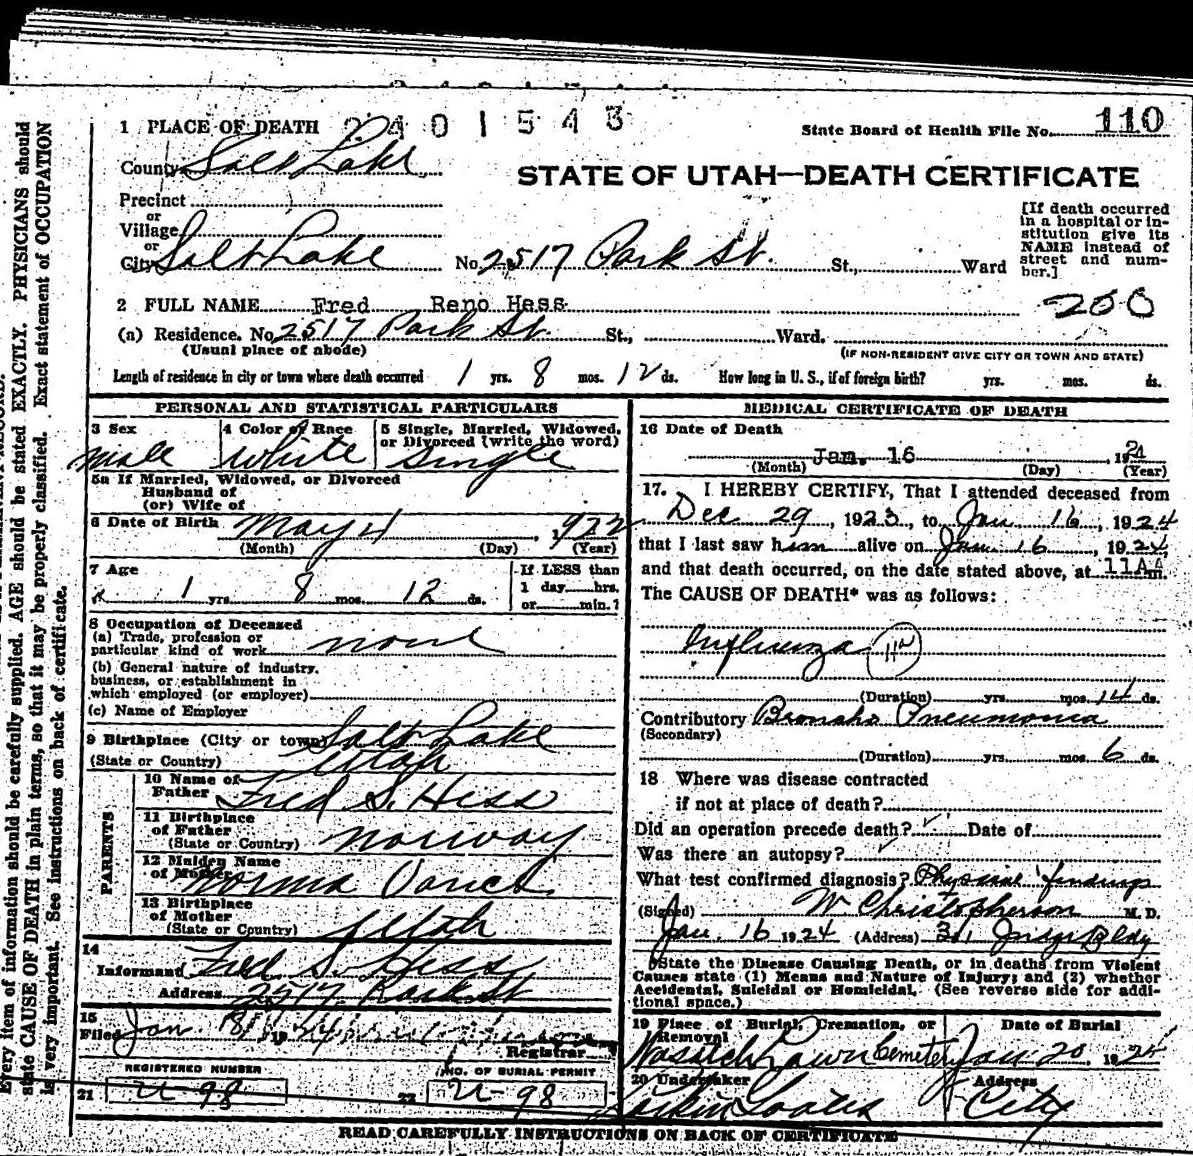 2401543
1 PLACE OF DEATH
State Board of Health File No. 110
County Salt Lake
STATE OF UTAH—DEATH CERTIFICATE
Precinct
or
Village
or
City Salt Lake No. 2517 Park St. St., Ward
[If death occurred
in a hospital or in-
stitution give its
NAME instead of
street and num-
ber.]
2 FULL NAME Fred Reno Hess
200
(a) Residence. No. 2517 Park St. St., Ward.
(Usual place of abode)
(IF NON-RESIDENT GIVE CITY OR TOWN AND STATE)
Length of residence in city or town where death occurred 1 yrs. 8 mos. 12 ds. How long in U. S., if of foreign birth? yrs. mos. ds.
PERSONAL AND STATISTICAL PARTICULARS
3 Sex 4 Color of Race 5 Single, Married, Widowed,
or Divorced (write the word)
male white single
5a If Married, Widowed, or Divorced
Husband of
(or) Wife of
6 Date of Birth May 4, 1922
(Month) (Day) (Year)
7 Age If LESS than
1 yrs. 8 mos. 12 ds. 1 day hrs.
or min.?
8 Occupation of Deceased
(a) Trade, profession or
particular kind of work none
(b) General nature of industry,
business, or establishment in
which employed (or employer)
(c) Name of Employer
9 Birthplace (City or town) Salt Lake
(State or Country) Utah
PARENTS
10 Name of
Father Fred S. Hess
11 Birthplace
of Father
(State or Country) Norway
12 Maiden Name
of Mother Norma Vance
13 Birthplace
of Mother
(State or Country) Utah
14
Informant Fred S. Hess
Address 2517 Park St
15
Filed Jan 18, 1924
Registrar
REGISTERED NUMBER NO. OF BURIAL PERMIT
21 U-98 22 U-98
MEDICAL CERTIFICATE OF DEATH
16 Date of Death
Jan. 16 1924
(Month) (Day) (Year)
17. I HEREBY CERTIFY, That I attended deceased from
Dec 29, 1923, to Jan 16, 1924
that I last saw him alive on Jan. 16, 1924,
and that death occurred, on the date stated above, at 11 A m.
The CAUSE OF DEATH* was as follows:
Influenza 11a
(Duration) yrs. mos. 14 ds.
Contributory Broncho Pneumonia
(Secondary)
(Duration) yrs. mos. 6 ds.
18 Where was disease contracted
if not at place of death?
Did an operation precede death? Date of
Was there an autopsy?
What test confirmed diagnosis? Physical findings
(Signed) W Christopherson M. D.
Jan. 16 1924 (Address) Bldg
*State the Disease Causing Death, or in deaths from Violent
Causes state (1) Means and Nature of Injury; and (2) whether
Accidental, Suicidal or Homicidal. (See reverse side for addi-
tional space.)
19 Place of Burial, Cremation, or Date of Burial
Removal
Wasatch Lawn Cemetery Jan 20 1924
20 Undertaker Address
City
READ CAREFULLY INSTRUCTIONS ON BACK OF CERTIFICATE
Every item of information should be carefully supplied. AGE should be stated EXACTLY. PHYSICIANS should
state CAUSE OF DEATH in plain terms, so that it may be properly classified. Exact statement of OCCUPATION
is very important. See instructions on back of certificate.